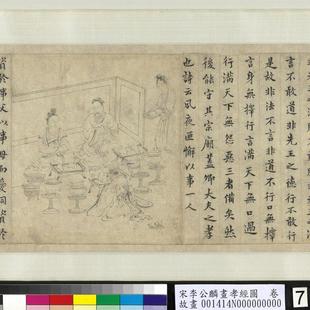 言不敢道非先王之德行不敢行
是故非法不言非道不行口無擇
言身無擇行言滿天下無口過
行滿天下無怨惡三者備矣然
後能守其宗廟蓋卿大夫之孝
也詩云夙夜匪懈以事一人
資於事父以事母而愛同資於
宋李公麟畫孝經圖 卷
故畫 001414N000000000
7